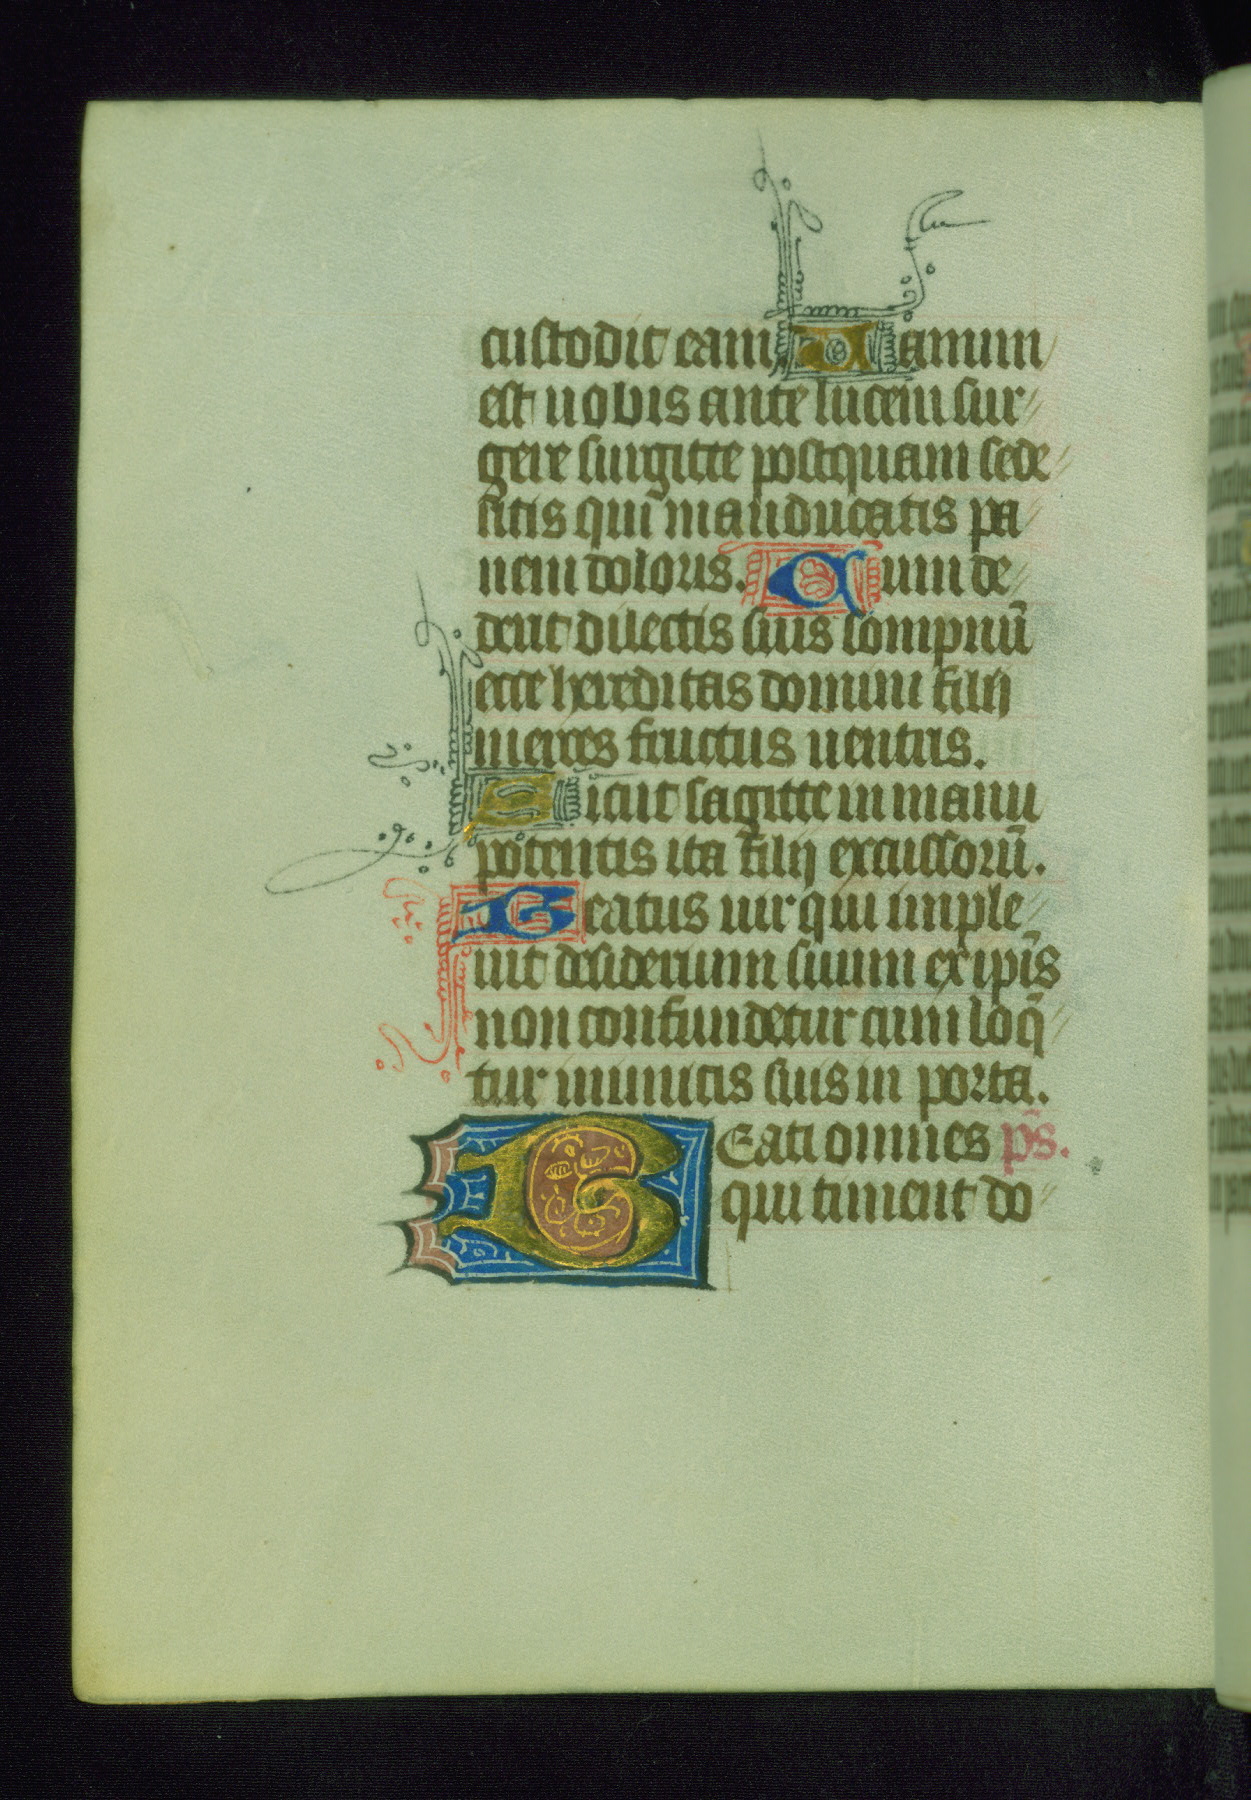 custodit eam. Uanum
est uobis ante lucem sur
gere surgitte postquam sede
ritis qui manducatis pa
nem doloris. Cum de
derit dilectis suis sompnũ
ecce hereditas domini filij
merces fructus uentris.
Sicut sagitte in manu
potentis ita filij excussorũ.
Beatus uir qui imple
uit desiderium suum ex ip̃is
non confundetur cum loq̃
tur inimicis suis in porta.
Beati omnes p̃s.
qui timent do